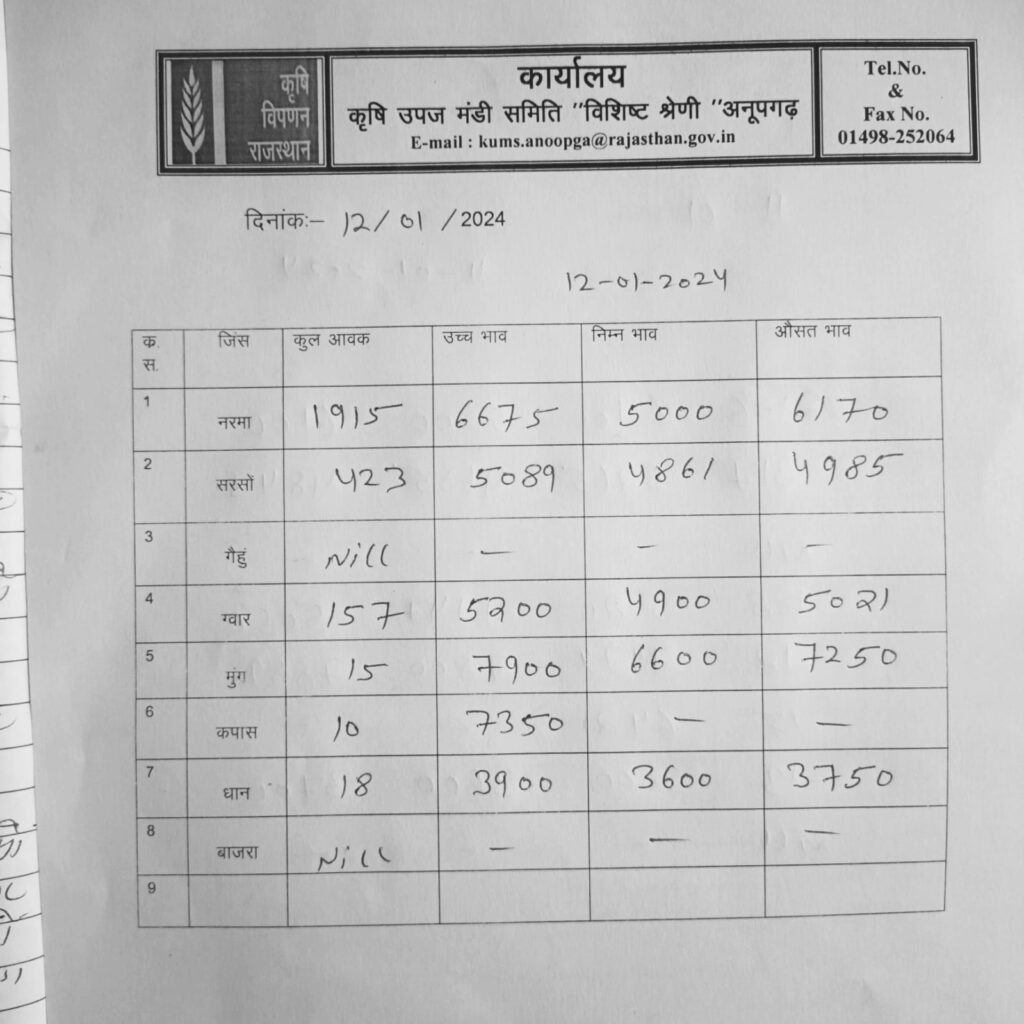 कृषि
विपणन
राजस्थान
कार्यालय
कृषि उपज मंडी समिति "विशिष्ट श्रेणी "अनूपगढ़
E-mail : kums.anoopga@rajasthan.gov.in
Tel.No.
&
Fax No.
01498-252064
दिनांकः– 12/ 01 /2024
12-01-2024
क. स. जिंस कुल आवक उच्च भाव निम्न भाव औसत भाव
1 नरमा 1915 6675 5000 6170
2 सरसों 423 5089 4861 4985
3 गैहुं Nill – – –
4 ग्वार 157 5200 4900 5021
5 मुंग 15 7900 6600 7250
6 कपास 10 7350 – –
7 धान 18 3900 3600 3750
8 बाजरा Nill – – –
9